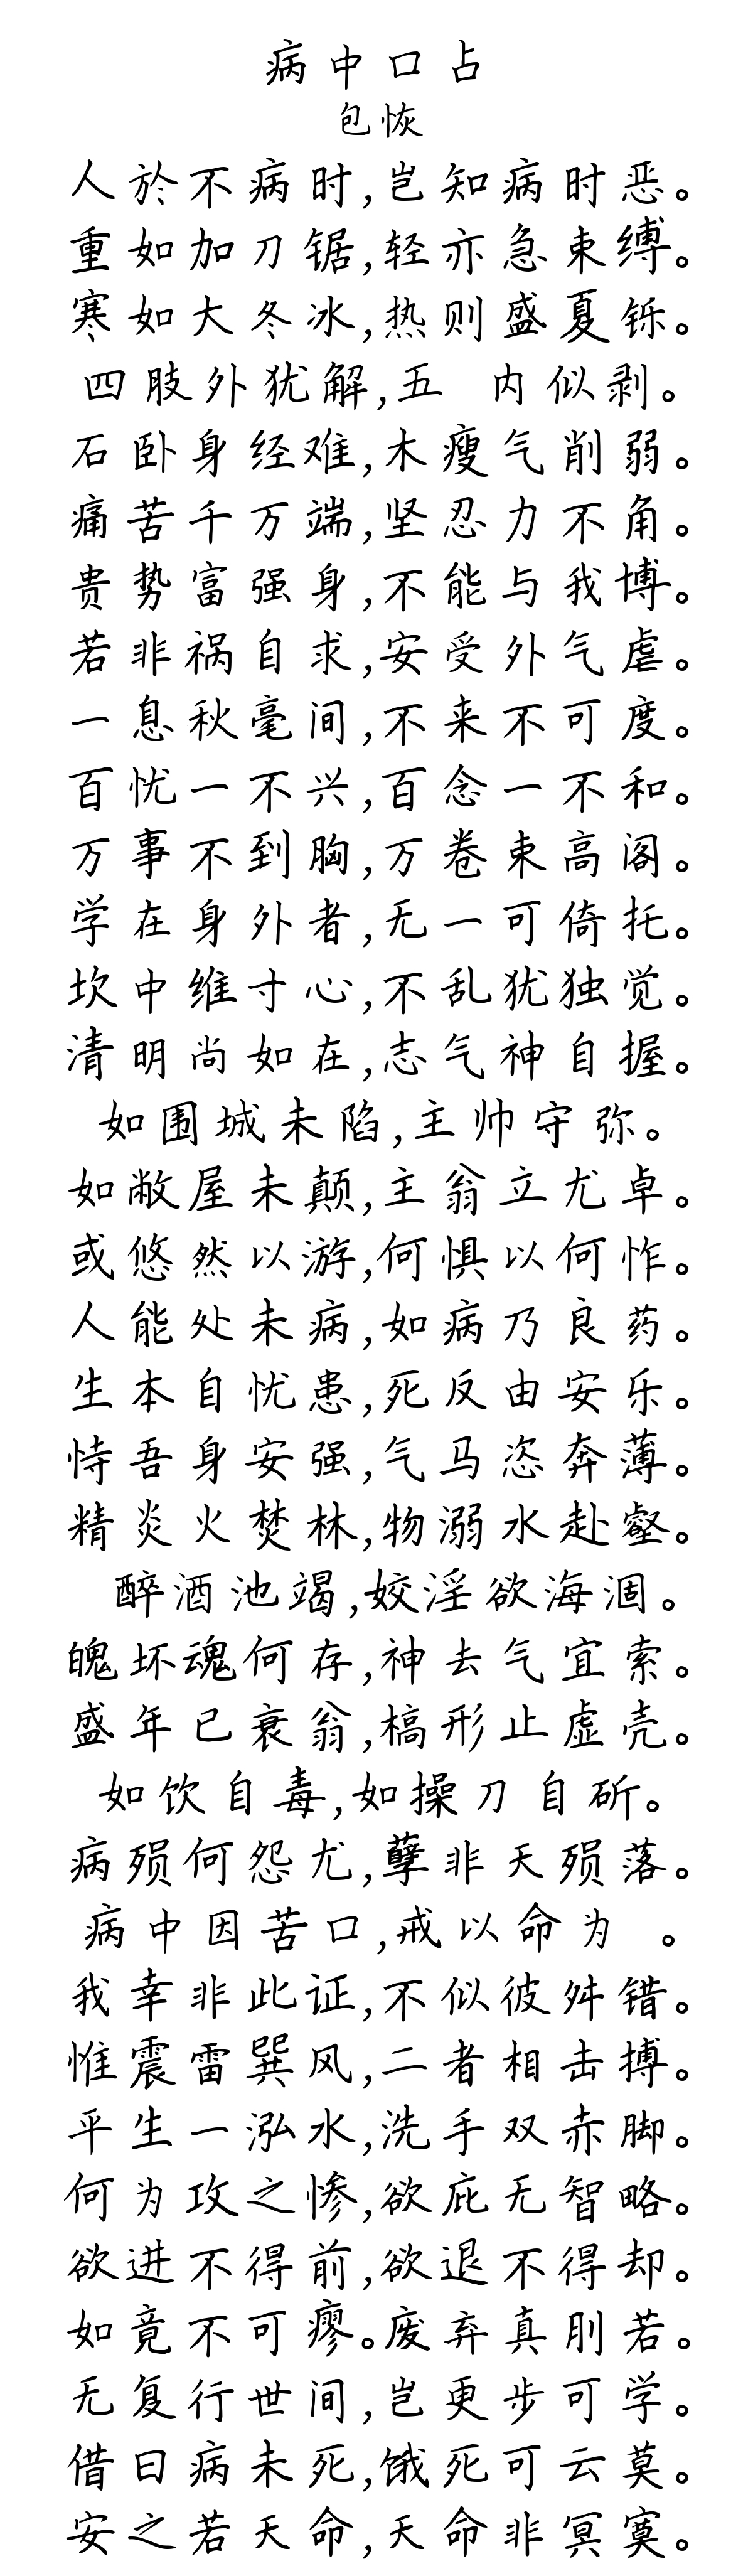 病中口占
包恢
人於不病时,岂知病时恶。
重如加刀锯,轻亦急束缚。
寒如大冬冰,热则盛夏铄。
四肢外犹解,五 内似剥。
石卧身经难,木瘦气削弱。
痛苦千万端,坚忍力不角。
贵势富强身,不能与我博。
若非祸自求,安受外气虐。
一息秋毫间,不来不可度。
百忧一不兴,百念一不和。
万事不到胸,万卷束高阁。
学在身外者,无一可倚托。
坎中维寸心,不乱犹独觉。
清明尚如在,志气神自握。
如围城未陷,主帅守弥。
如敝屋未颠,主翁立尤卓。
或悠然以游,何惧以何怍。
人能处未病,如病乃良药。
生本自忧患,死反由安乐。
恃吾身安强,气马恣奔薄。
精炎火焚林,物溺水赴壑。
醉酒池竭,姣淫欲海涸。
魄坏魂何存,神去气宜索。
盛年已衰翁,槁形止虚壳。
如饮自毒,如操刀自斫。
病殒何怨尤,孽非天殒落。
病中因苦口,戒以命为 。
我幸非此证,不似彼舛错。
惟震雷巽风,二者相击搏。
平生一泓水,洗手双赤脚。
何为攻之惨,欲庇无智略。
欲进不得前,欲退不得却。
如竟不可瘳。废弃真刖若。
无复行世间,岂更步可学。
借曰病未死,饿死可云莫。
安之若天命,天命非冥寞。